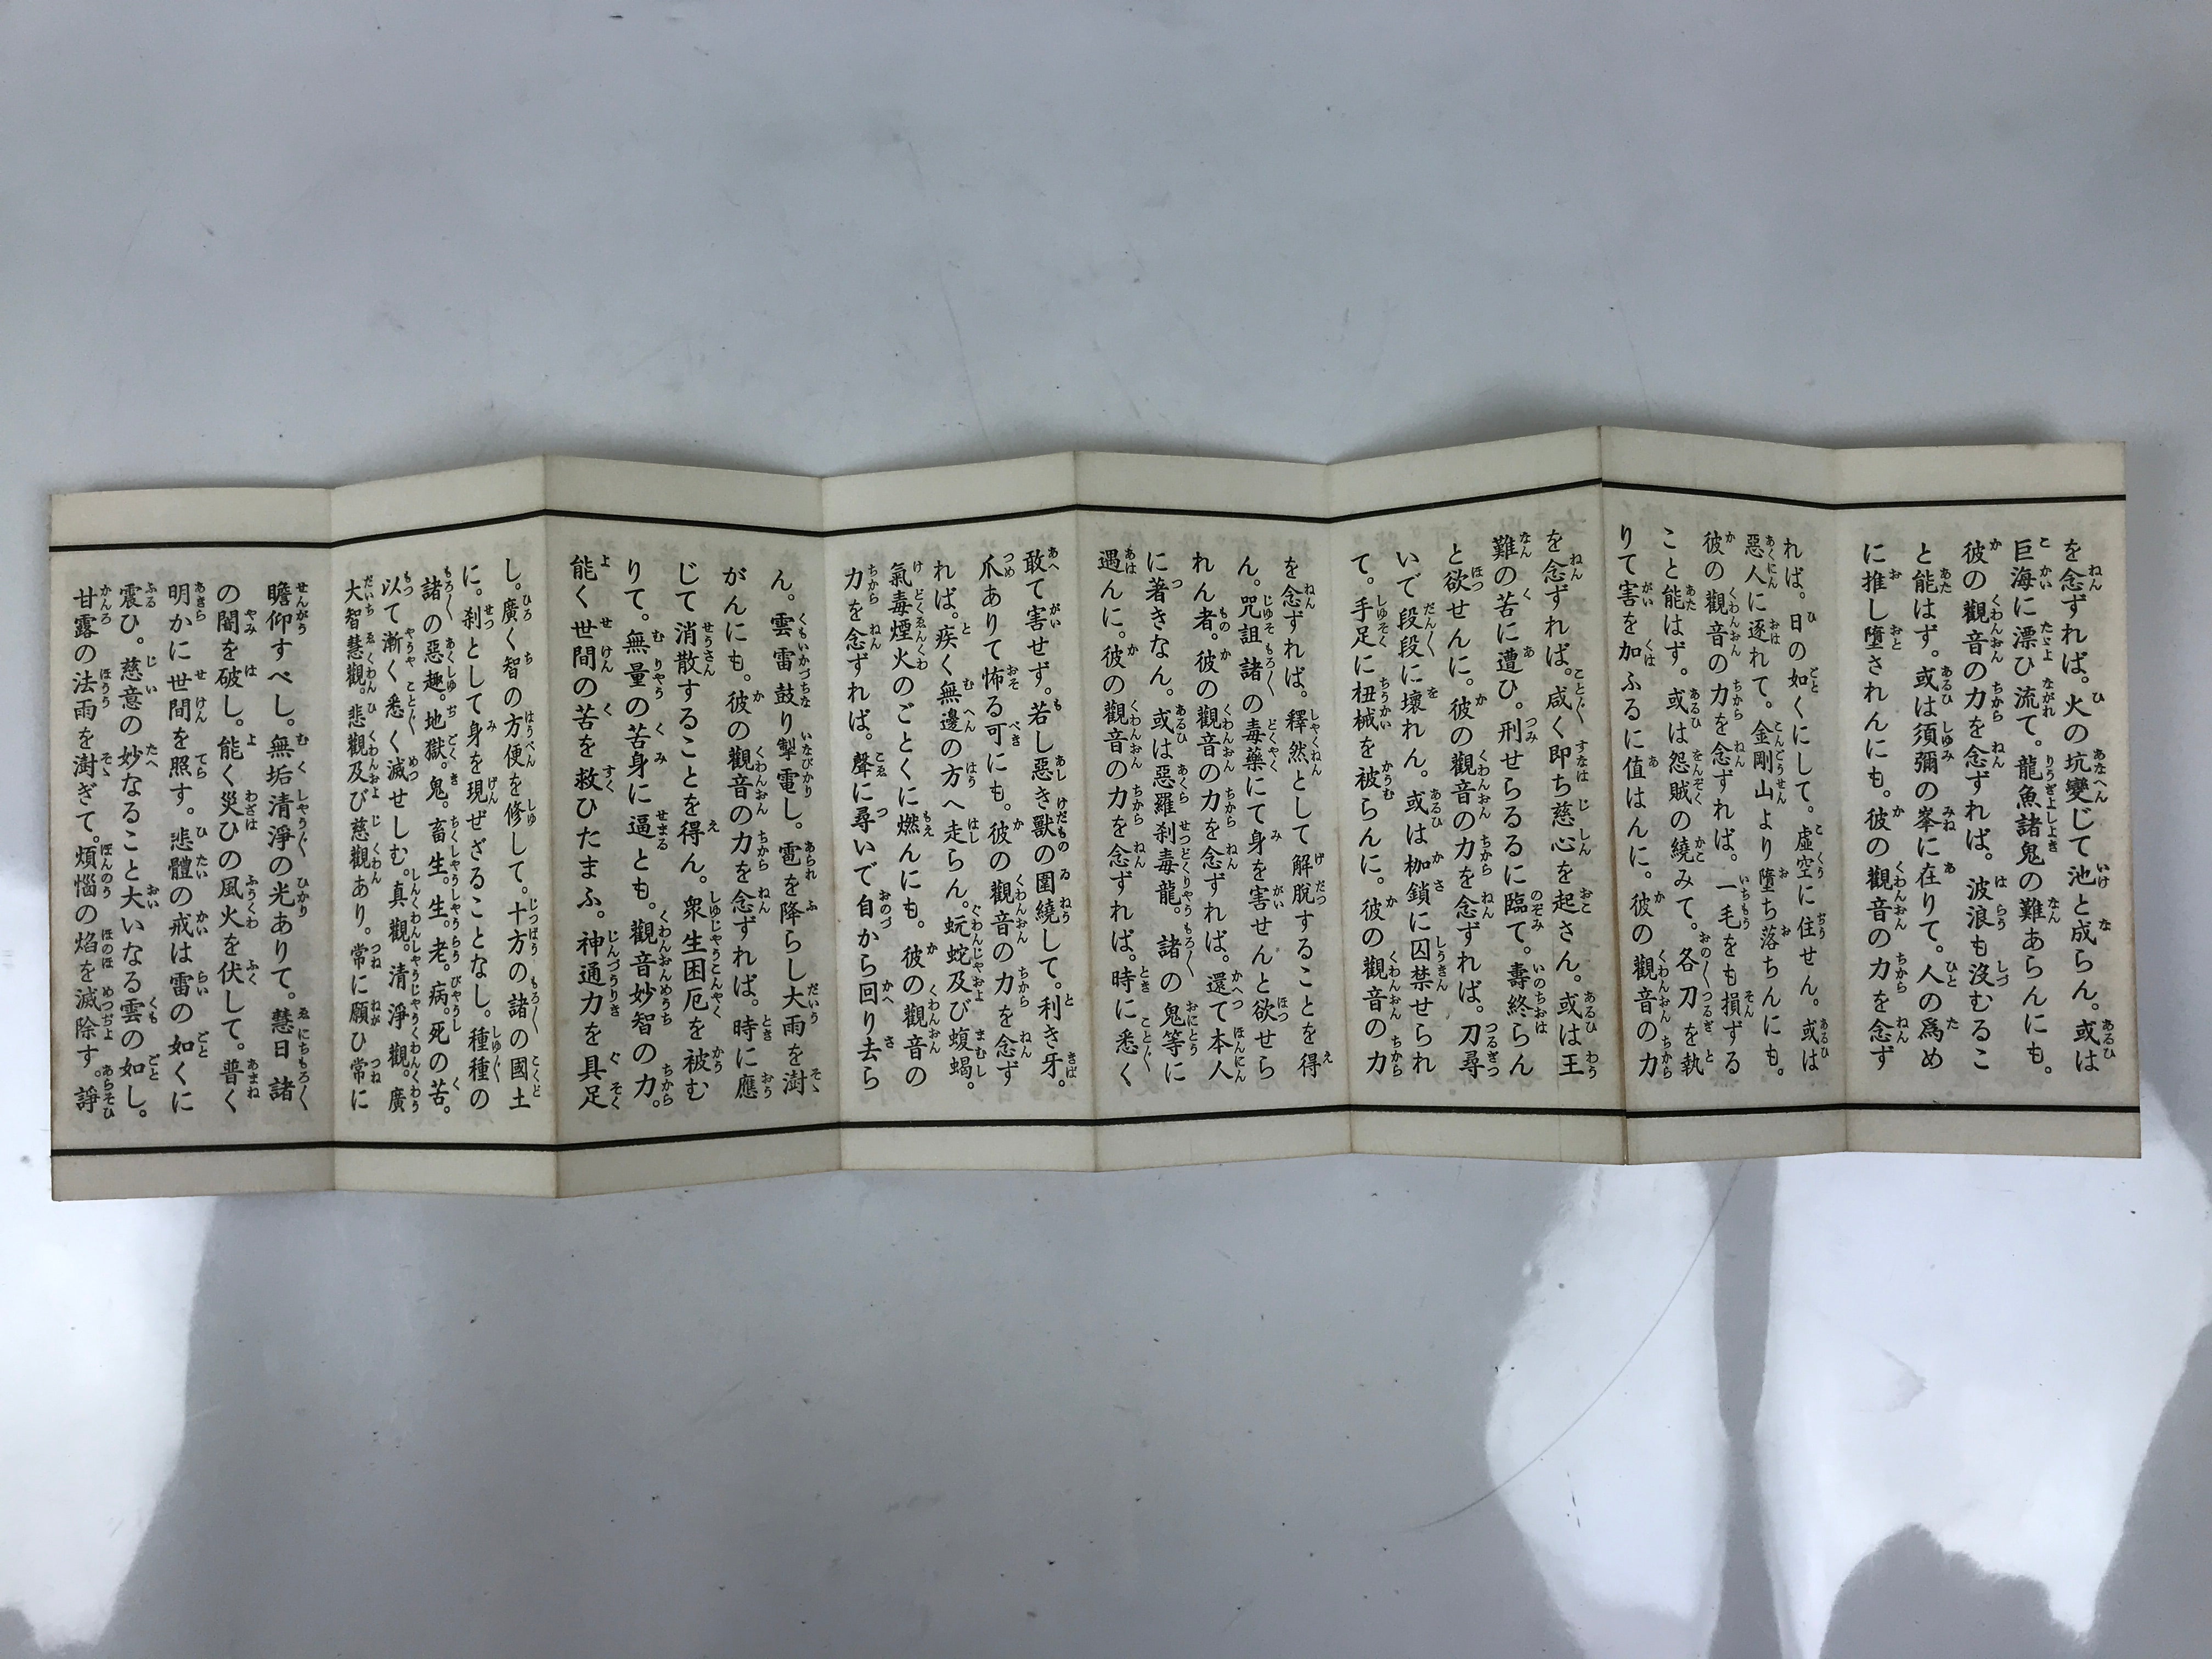 を念ずれば。火の坑變じて池と成らん。或は
巨海に漂ひ流て。龍魚諸鬼の難あらんにも。
彼の觀音の力を念ずれば。波浪も沒むるこ
と能はず。或は須彌の峯に在りて。人の爲め
に推し墮されんにも。彼の觀音の力を念ず
れば。日の如くにして。虛空に住せん。或は
惡人に逐れて。金剛山より墮ち落ちんにも。
彼の觀音の力を念ずれば。一毛をも損ずる
こと能はず。或は怨賊の繞みて。各刀を執
りて害を加ふるに値はんに。彼の觀音の力
を念ずれば。咸く即ち慈心を起さん。或は王
難の苦に遭ひ。刑せらるるに臨て。壽終らん
と欲せんに。彼の觀音の力を念ずれば。刀尋
いで段段に壞れん。或は枷鎖に囚禁せられ
て。手足に杻械を被らんに。彼の觀音の力
を念ずれば。釋然として解脫することを得
ん。咒詛諸の毒藥にて身を害せんと欲せら
れん者。彼の觀音の力を念ずれば。還て本人
に著きなん。或は惡羅刹毒龍。諸の鬼等に
遇んに。彼の觀音の力を念ずれば。時に悉く
敢て害せず。若し惡き獸の圍繞して。利き牙。
爪ありて怖る可にも。彼の觀音の力を念ず
れば。疾く無邊の方へ走らん。蚖蛇及び蝮蝎。
氣毒煙火のごとくに燃んにも。彼の觀音の
力を念ずれば。聲に尋いで自から回り去ら
ん。雲雷鼓り掣電し。雹を降らし大雨を澍
がんにも。彼の觀音の力を念ずれば。時に應
じて消散することを得ん。衆生困厄を被む
りて。無量の苦身に逼とも。觀音妙智の力。
能く世間の苦を救ひたまふ。神通力を具足
し。廣く智の方便を修して。十方の諸の國土
に。刹として身を現ぜざることなし。種種の
諸の惡趣。地獄。鬼。畜生。生。老。病。死の苦。
以て漸く悉く滅せしむ。真觀。清淨觀。廣
大智慧觀。悲觀及び慈觀あり。常に願ひ常に
瞻仰すべし。無垢清淨の光ありて。慧日諸
の闇を破し。能く災ひの風火を伏して。普く
明かに世間を照す。悲體の戒は雷の如くに
震ひ。慈意の妙なること大いなる雲の如し。
甘露の法雨を澍ぎて。煩惱の焰を滅除す。諍